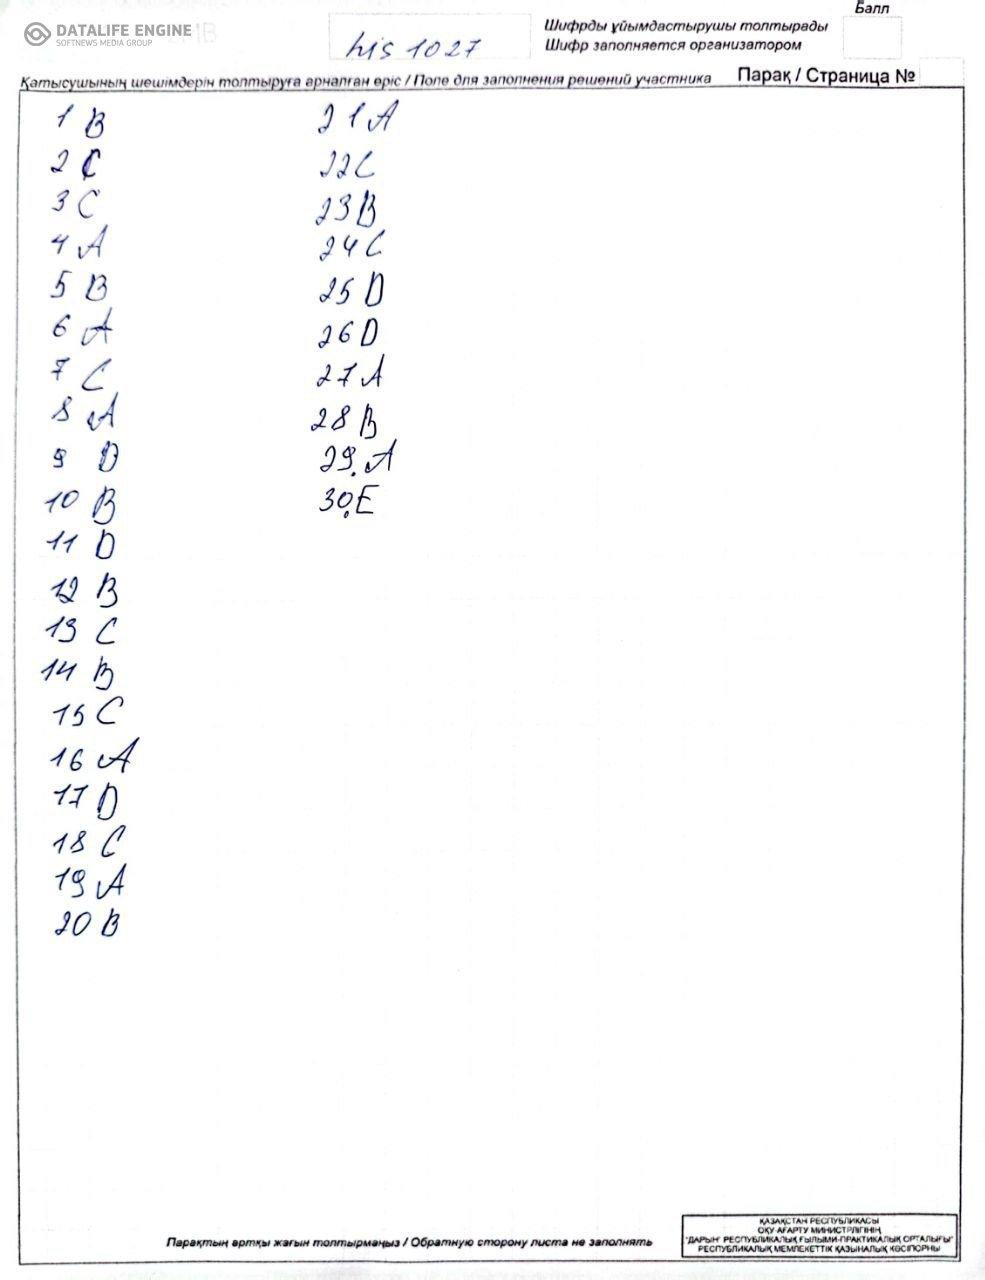 DATALIFE ENGINE
SOFTNEWS MEDIA GROUP
Балл
his 1027
Шифрды ұйымдастырушы толтырады
Шифр заполняется организатором
Қатысушының шешімдерін толтыруға арналған өріс / Поле для заполнения решений участника
Парақ / Страница №
1 B
2 C
3 C
4 A
5 B
6 A
7 C
8 A
9 D
10 B
11 D
12 B
13 C
14 B
15 C
16 A
17 D
18 C
19 A
20 B
21 A
22 C
23 B
24 C
25 D
26 D
27 A
28 B
29. A
30. E
Парақтың артқы жағын толтырмаңыз / Обратную сторону листа не заполнять
ҚАЗАҚСТАН РЕСПУБЛИКАСЫ
ОҚУ-АҒАРТУ МИНИСТРЛІГІНІҢ
"ДАРЫН" РЕСПУБЛИКАЛЫҚ ҒЫЛЫМИ-ПРАКТИКАЛЫҚ ОРТАЛЫҒЫ"
РЕСПУБЛИКАЛЫҚ МЕМЛЕКЕТТІК ҚАЗЫНАЛЫҚ КӘСІПОРНЫ